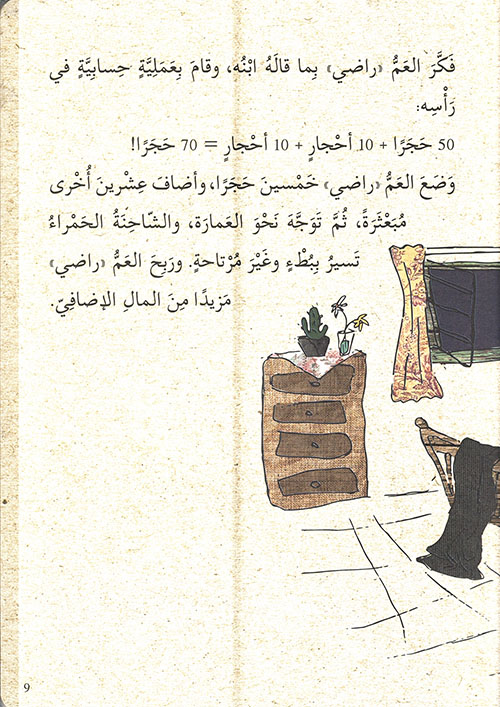 فَكَّرَ العَمُّ «راضي» بِما قالَهُ ابْنُه، وقامَ بِعَمَلِيَّةٍ حِسابِيَّةٍ في
رَأْسِه:
50 حَجَرًا + 10 أحْجارٍ + 10 أحْجارٍ = 70 حَجَرًا!
وَضَعَ العَمُّ «راضي» خَمْسينَ حَجَرًا، وأضافَ عِشْرينَ أُخْرى
مُبَعْثَرَةً، ثُمَّ تَوَجَّهَ نَحْوَ العَمارَة، والشّاحِنَةُ الحَمْراءُ
تَسيرُ بِبُطْءٍ وغَيْرَ مُرْتاحةٍ. ورَبِحَ العَمُّ «راضي»
مَزيدًا مِنَ المالِ الإضافِيّ.
9